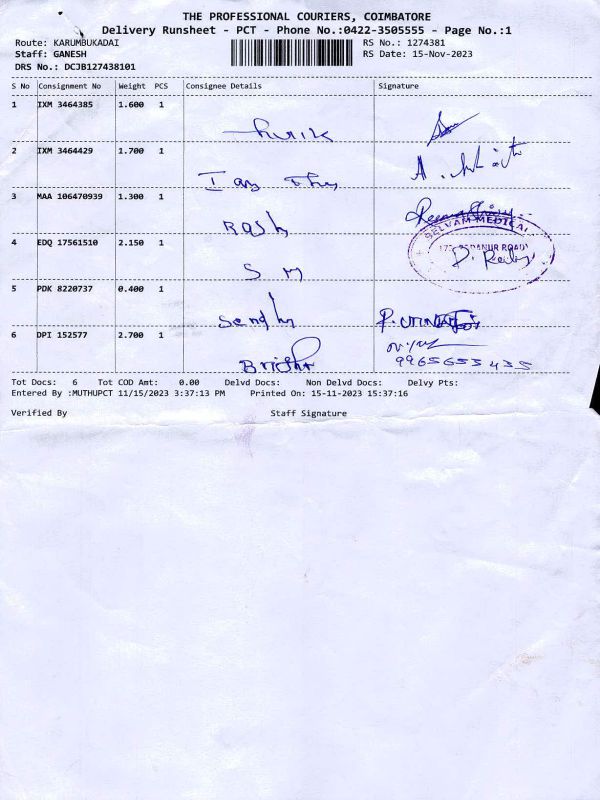 THE PROFESSIONAL COURIERS, COIMBATORE
Delivery Runsheet - PCT - Phone No.:0422-3505555 - Page No.:1
Route: KARUMBUKADAI RS No.: 1274381
Staff: GANESH RS Date: 15-Nov-2023
DRS No.: DCJB127438101
S No Consignment No Weight PCS Consignee Details Signature
1 IXM 3464385 1.600 1
2 IXM 3464429 1.700 1
3 MAA 106470939 1.300 1
SELVAM MEDICAL
4 EDQ 17561510 2.150 1 S M
5 PDK 8220737 0.400 1
6 DPI 152577 2.700 1
9965655435
Tot Docs: 6 Tot COD Amt: 0.00 Delvd Docs: Non Delvd Docs: Delvy Pts:
Entered By :MUTHUPCT 11/15/2023 3:37:13 PM Printed On: 15-11-2023 15:37:16
Verified By Staff Signature